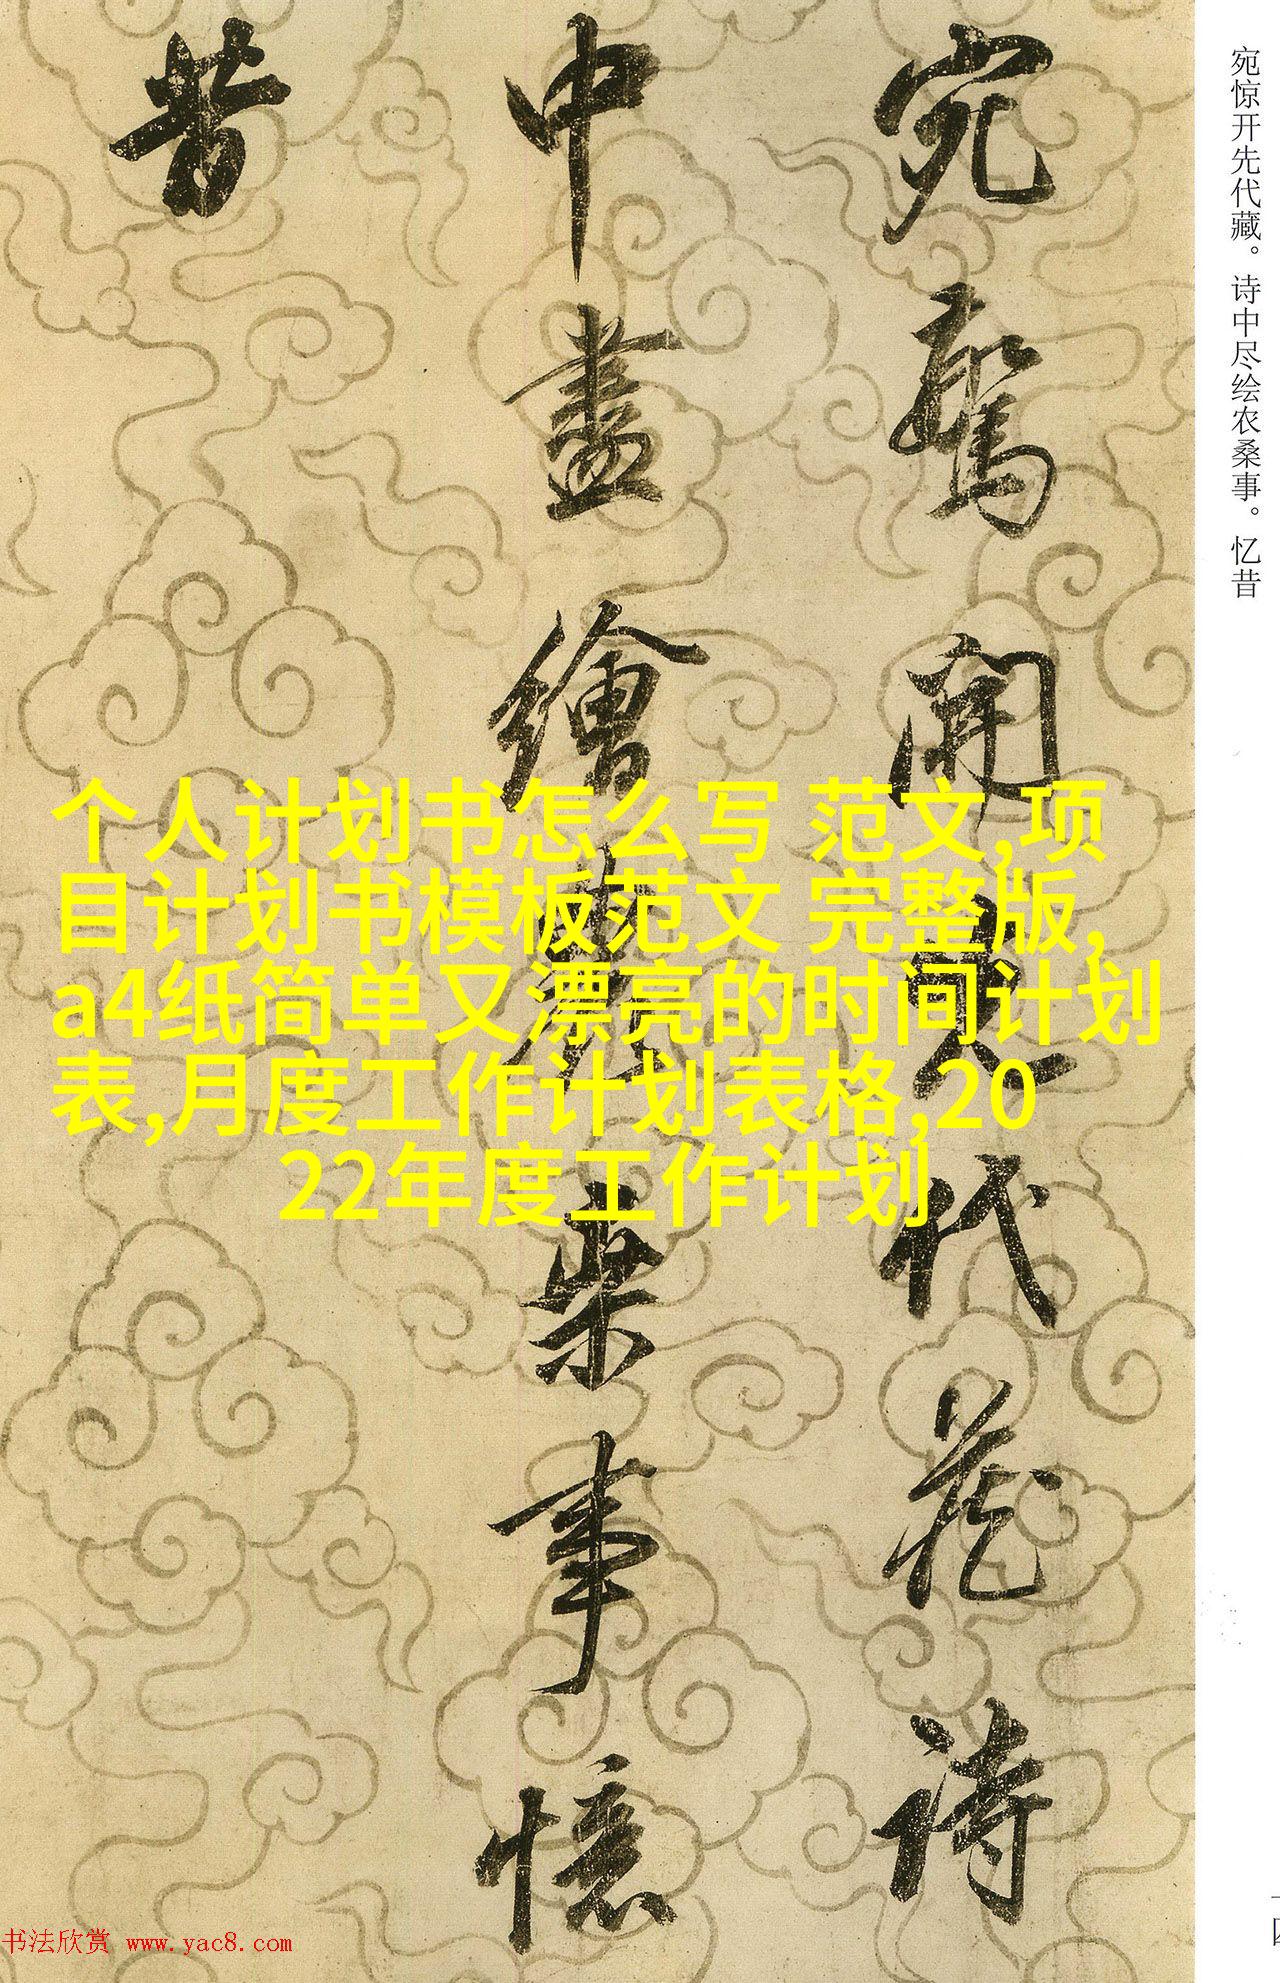 宛惊开先代藏。诗中尽绘农桑事。忆昔
宛驚開先代藏詩
中盡繪農桑事憶
昔
个人计划书怎么写 范文,项
目计划书模板范文 完整版,
a4纸简单又漂亮的时间计划
表,月度工作计划表格,20
22年度工作计划
书法欣赏 www.yac8.com